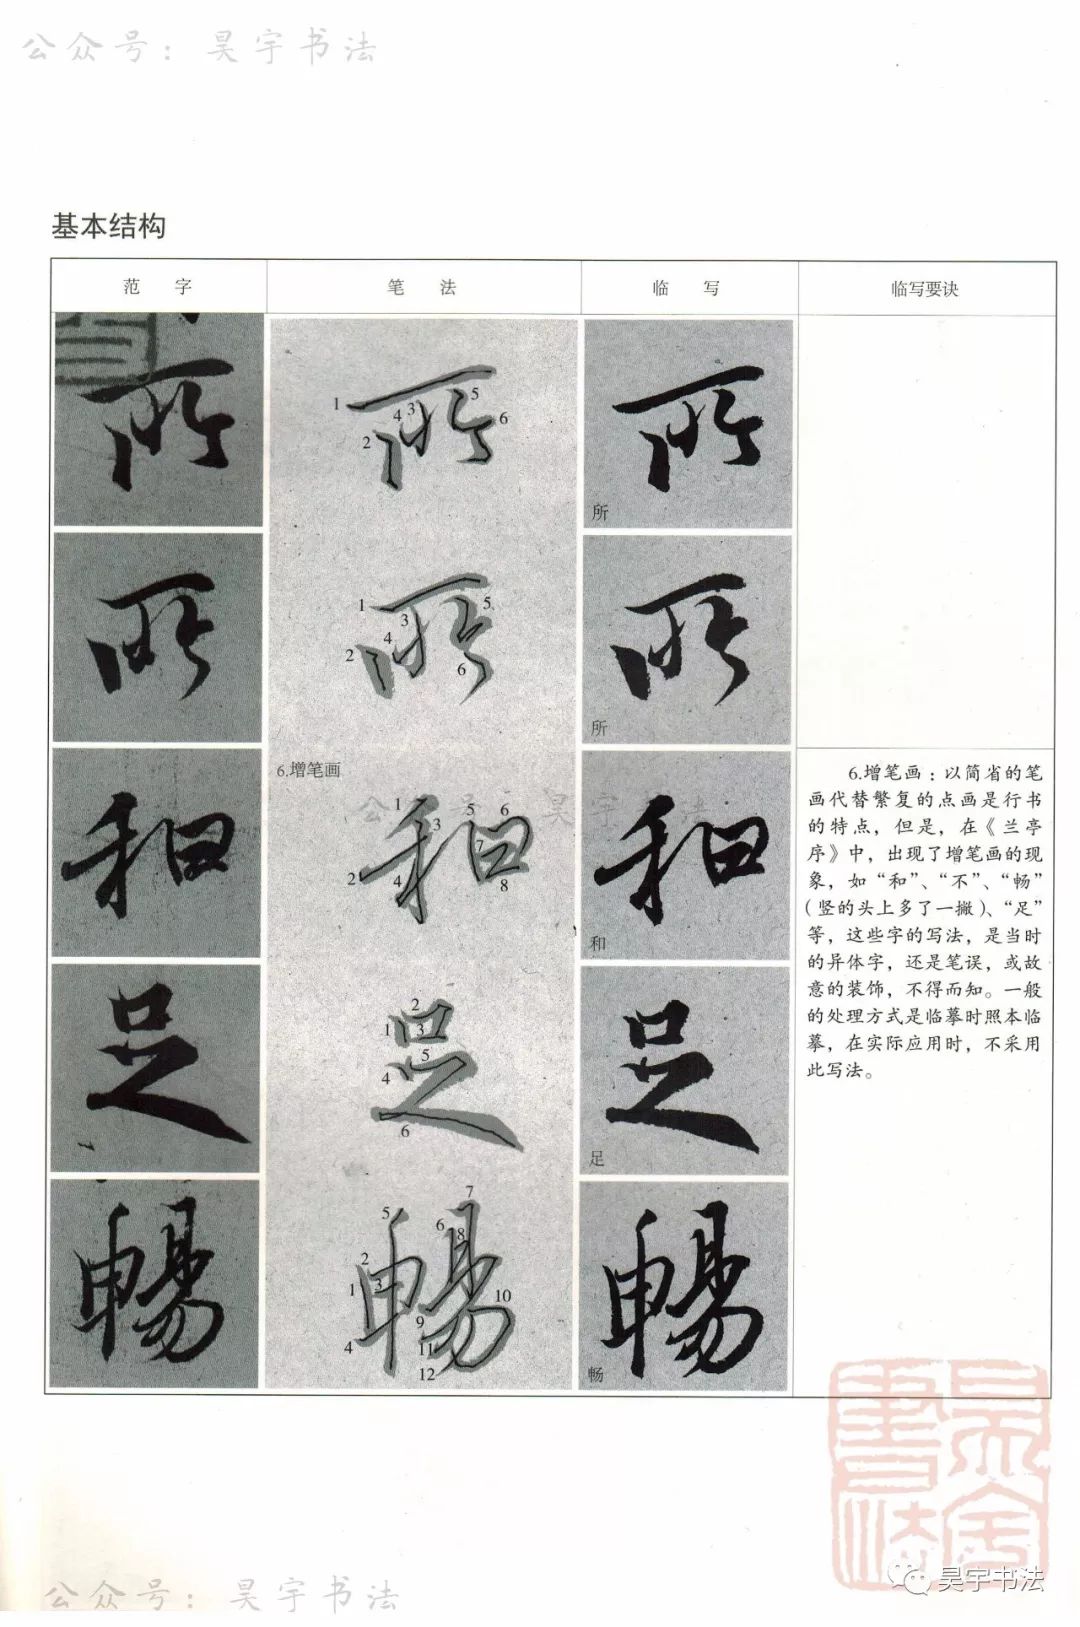 公众号：昊宇书法
基本结构
范 字
笔 法
临 写
临写要诀
所
1 2 3 4 5 6
所
所
所
1 2 3 4 5 6
所
所
6.增笔画
公众号：昊宇书法
和
1 2 3 4 5 6 7 8
和
和
足
1 2 3 4 5 6
足
足
暢
1 2 3 4 5 6 7 8 9 10 11 12
暢
畅
6.增笔画：以简省的笔
画代替繁复的点画是行书
的特点，但是，在《兰亭
序》中，出现了增笔画的现
象，如“和”、“不”、“畅”
（竖的头上多了一撇）、“足”
等，这些字的写法，是当时
的异体字，还是笔误，或故
意的装饰，不得而知。一般
的处理方式是临摹时照本临
摹，在实际应用时，不采用
此写法。
昊宇書法
昊宇书法
公众号：昊宇书法